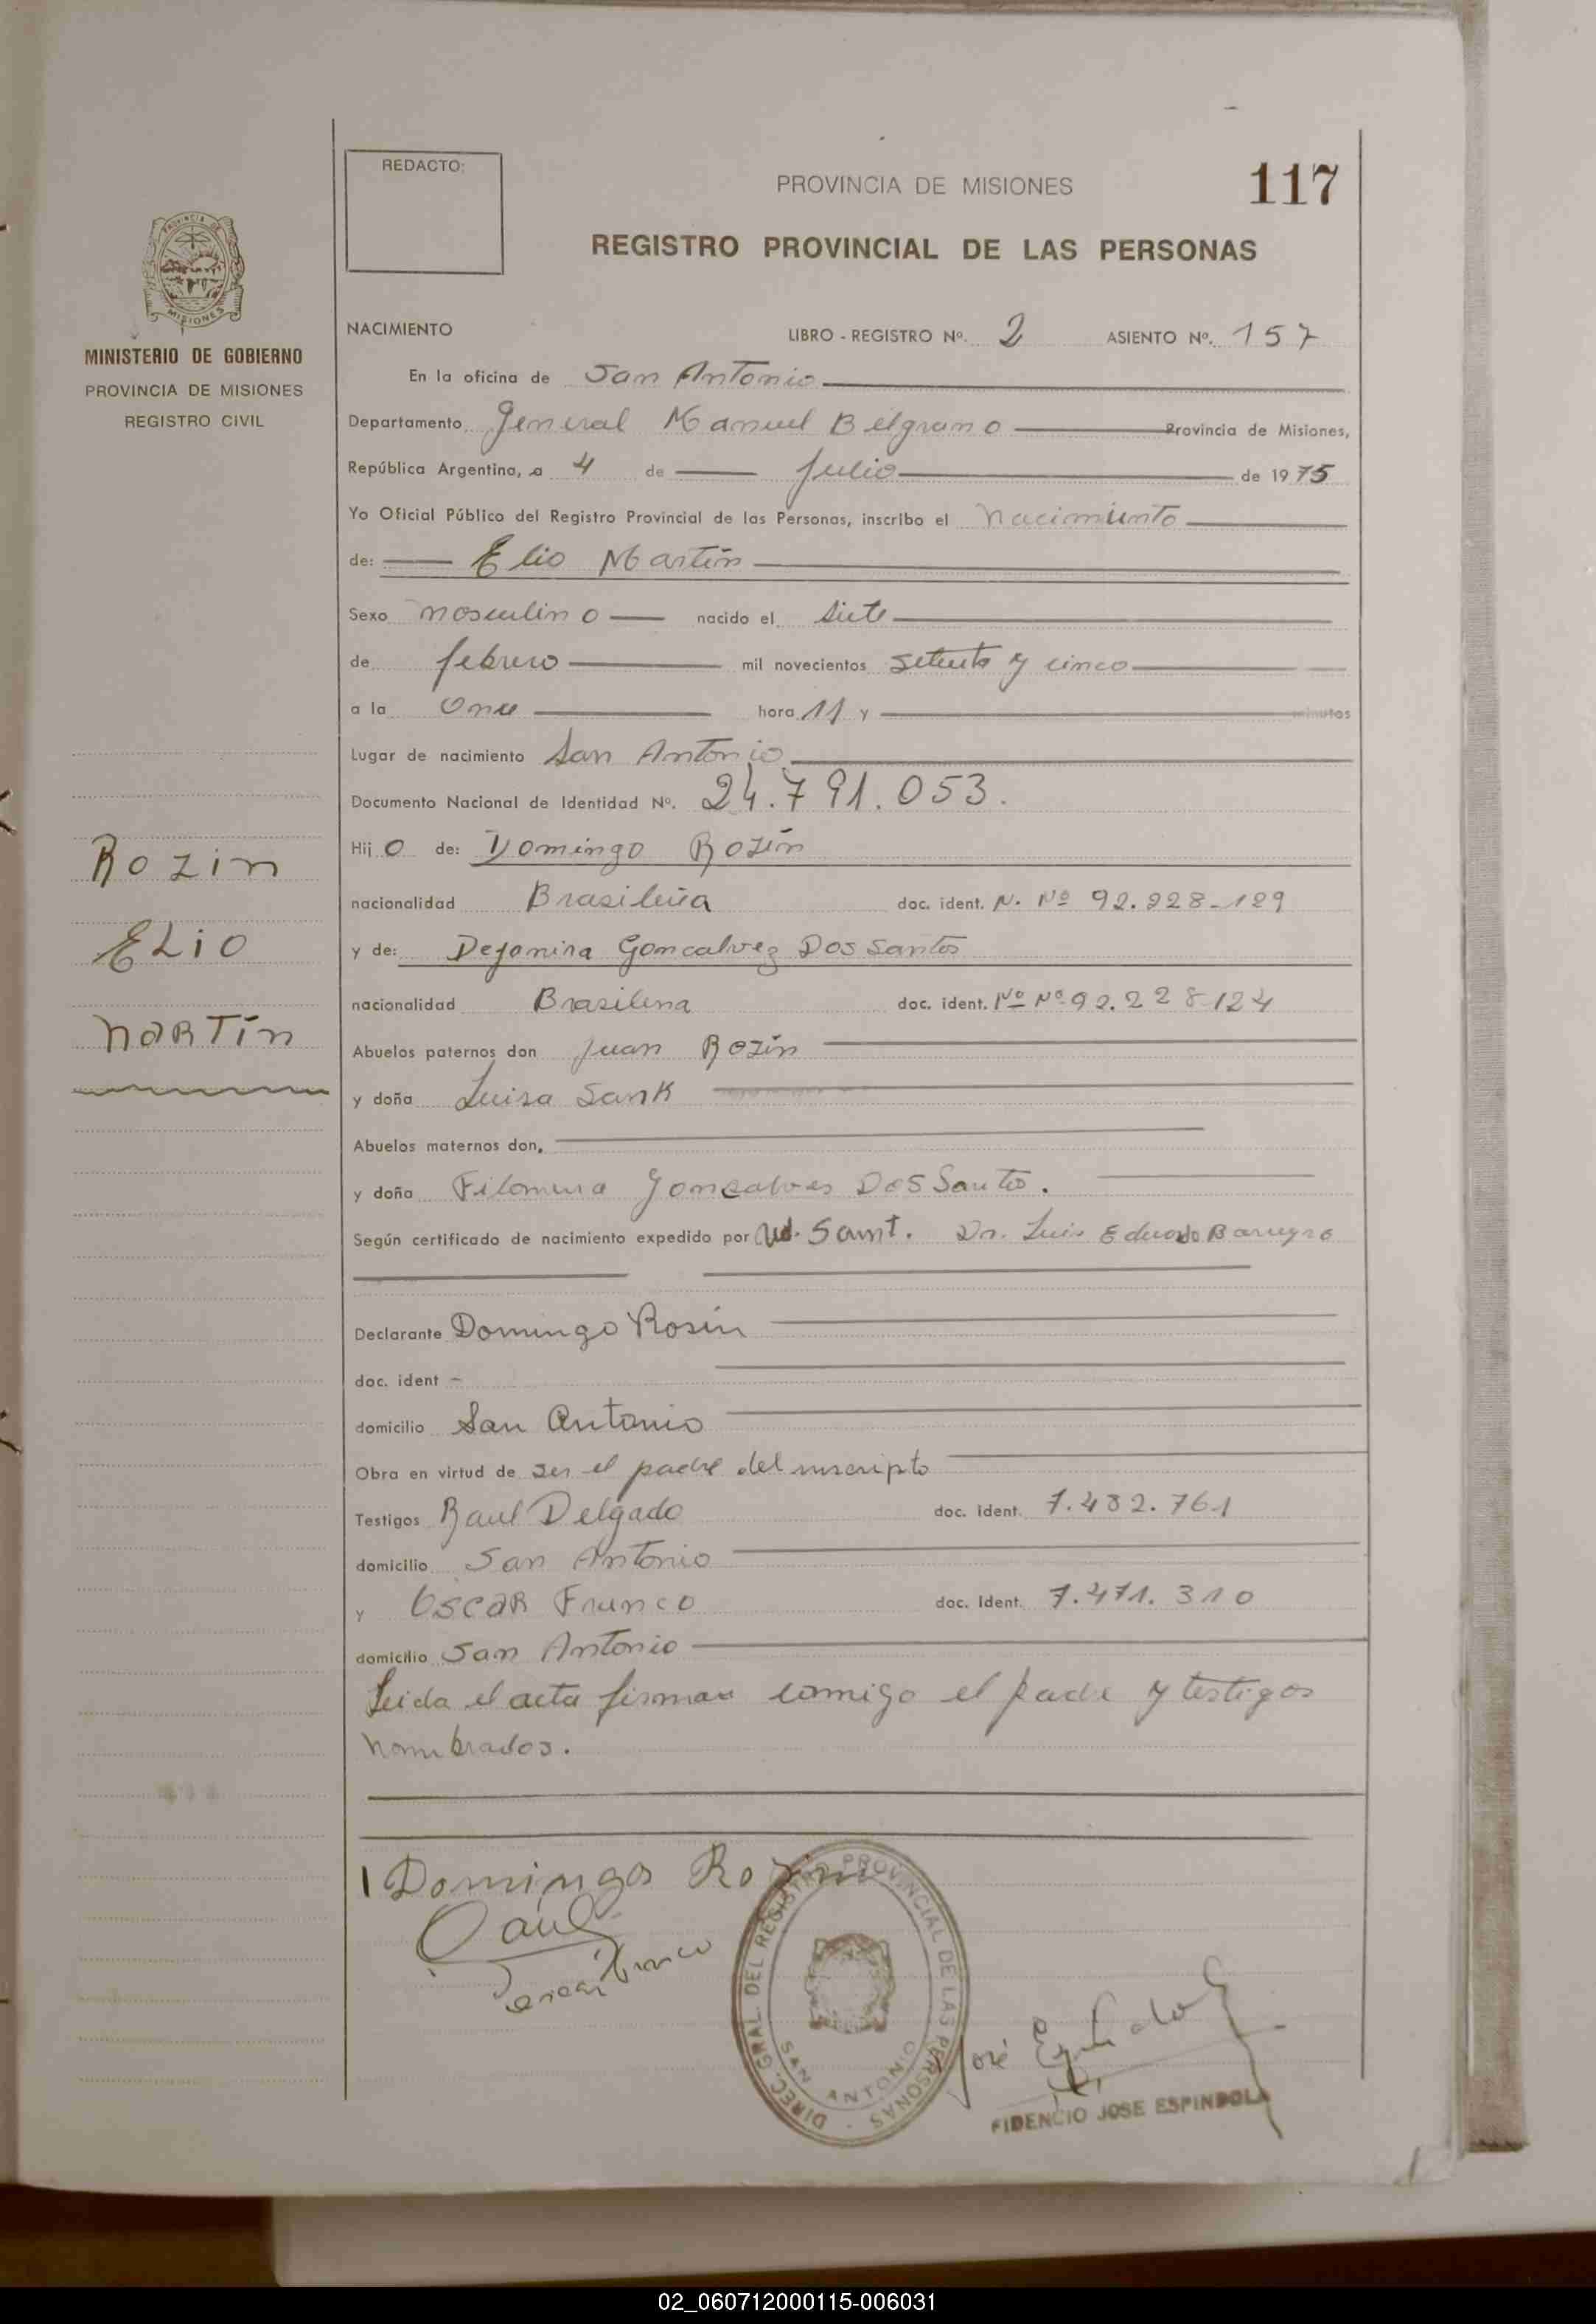 REDACTO:
PROVINCIA DE MISIONES
117
REGISTRO PROVINCIAL DE LAS PERSONAS
MINISTERIO DE GOBIERNO
PROVINCIA DE MISIONES
REGISTRO CIVIL
NACIMIENTO LIBRO - REGISTRO Nº. 2 ASIENTO Nº. 157
En la oficina de San Antonio
Departamento General Manuel Belgrano Provincia de Misiones,
República Argentina, a 4 de Julio de 1975
Yo Oficial Público del Registro Provincial de las Personas, inscribo el Nacimiento
de: Elio Martín
Sexo masculino nacido el siete
de febrero mil novecientos setenta y cinco
a la Once hora 11 y minutos
Lugar de nacimiento San Antonio
Documento Nacional de Identidad Nº. 24.791.053.
Hij o de: Domingo Rozín
nacionalidad Brasileña doc. ident. N. Nº 92.228-129
y de: Dejanira Goncalvez Dos Santos
nacionalidad Brasilena doc. ident. Nº Nº 92.228124
Abuelos paternos don Juan Rozín
y doña Luisa Sank
Abuelos maternos don,
y doña Filomena Gonzalves Dos Santo.
Según certificado de nacimiento expedido por Ud. Sant. Dr. Luis Eduardo
Declarante Domingo Rosin
doc. ident -
domicilio San Antonio
Obra en virtud de ser el padre del inscripto
Testigos Raul Delgado doc. ident. 7.482.761
domicilio San Antonio
y Oscar Franco doc. Ident. 7.471.310
domicilio San Antonio
Leida el acta firman comigo el padre y testigos
nombrados.
Rozin
ELiO
MARTín
Domingos Rozini
Raul
Oscar Franco
DIREC. GRAL. DEL REGISTRO PROVINCIAL DE LAS PERSONAS -
SAN ANTONIO
José Espindola
FIDENCIO JOSE ESPINDOLA
02_060712000115-006031